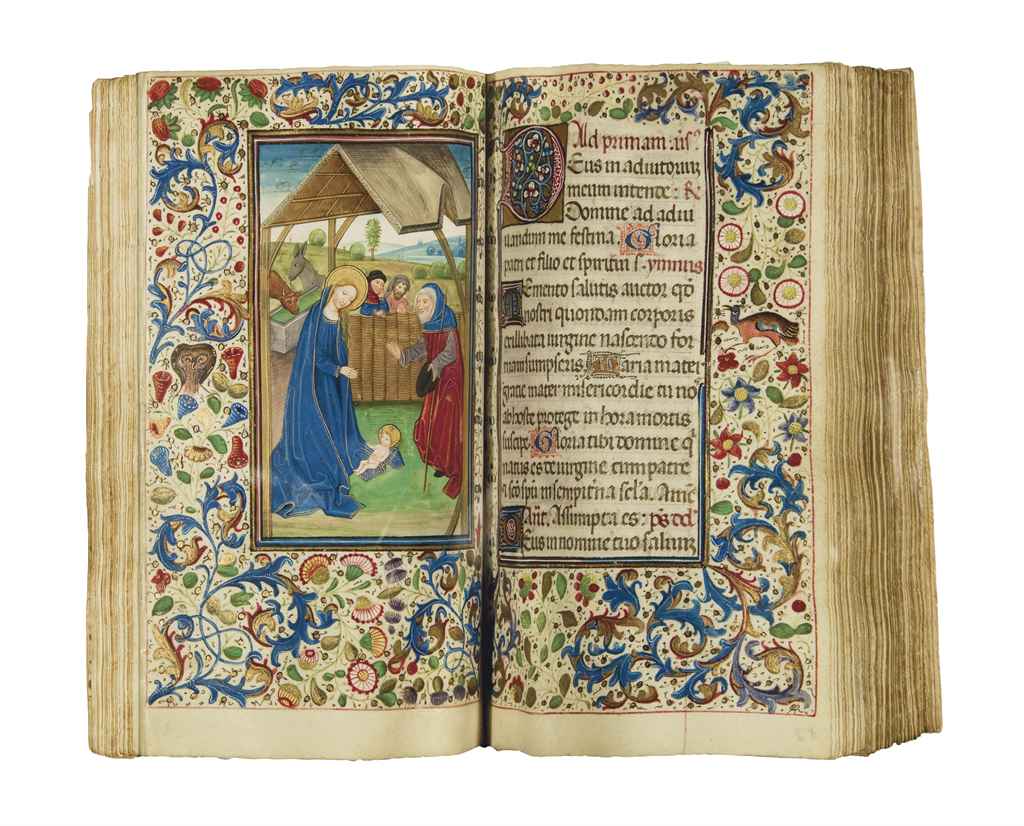 Ad primam .us.
Deus in adiutorium
meum intende : R
Domine ad adiu
uandum me festina . Gloria
patri et filio et spiritui s. ymnus
Memento salutis auctor qd
nostri quondam corporis
ex illibata uirgine nascendo for
mam sumpseris Maria mater
gratie mater misericordie tu nos
ab hoste protege in hora mortis
suscipe Gloria tibi domine q
natus es de uirgine cum patre
et sco spu in sempitna secla. Amen
Ant. Assumpta es : ps dd
Deus in nomine tuo saluum